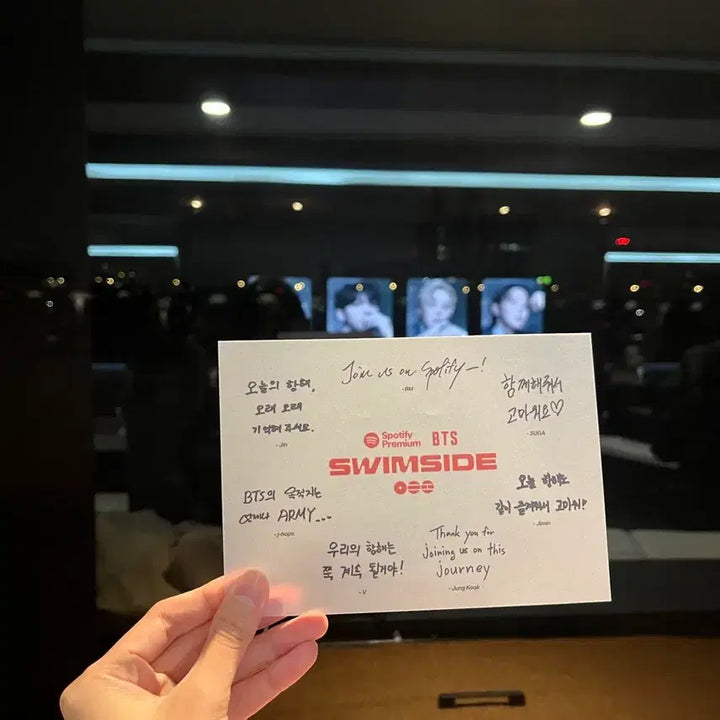 Join us on Spotify—!
- RM
오늘의 항해,
오래 오래
기억해 주세요.
- Jin
함께해줘서
고마워요♡
- SUGA
Spotify
Premium
BTS
SWIMSIDE
BTS의 목적지는
언제나 ARMY...
- j-hope
오늘 항해도
같이 즐겨줘서 고마워!
- Jimin
우리의 항해는
쭉 계속 될거야!
- V
Thank you for
joining us on this
journey
- Jung Kook